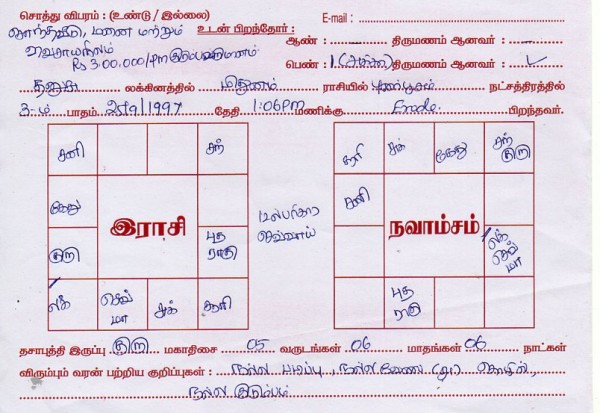 சொத்து விபரம் : (உண்டு / இல்லை)
E-mail :
சொந்தவீடு, மனை மற்றும்
உடன் பிறந்தோர் :
விவசாயநிலம்
Rs 3,00,000/pm குடும்பவருமானம்
ஆண் : திருமணம் ஆனவர் :
பெண் : 1 (அக்கா) திருமணம் ஆனவர் :
தனுசு லக்கினத்தில் மிதுனம் ராசியில் புனர்பூசம் நட்சத்திரத்தில்
3-ம் பாதம் 25/9/1997 தேதி 1:06pm மணிக்கு Erode பிறந்தவர்.
சனி
சந்
கேது
குரு
புத
ராகு
ல
செவ்
மா
சுக்
சூரி
இராசி
பரிகார
செவ்வாய்
சூரி
சுக்
கேது
சந்
குரு
சனி
ல
செவ்
மா
புத
ராகு
நவாம்சம்
தசாபுத்தி இருப்பு : குரு மகாதிசை 05 வருடங்கள் 06 மாதங்கள் 06 நாட்கள்
விரும்பும் வரன் பற்றிய குறிப்புகள் : நல்ல படிப்பு, நல்ல வேலை (அ) தொழில்,
நல்ல குடும்பம்